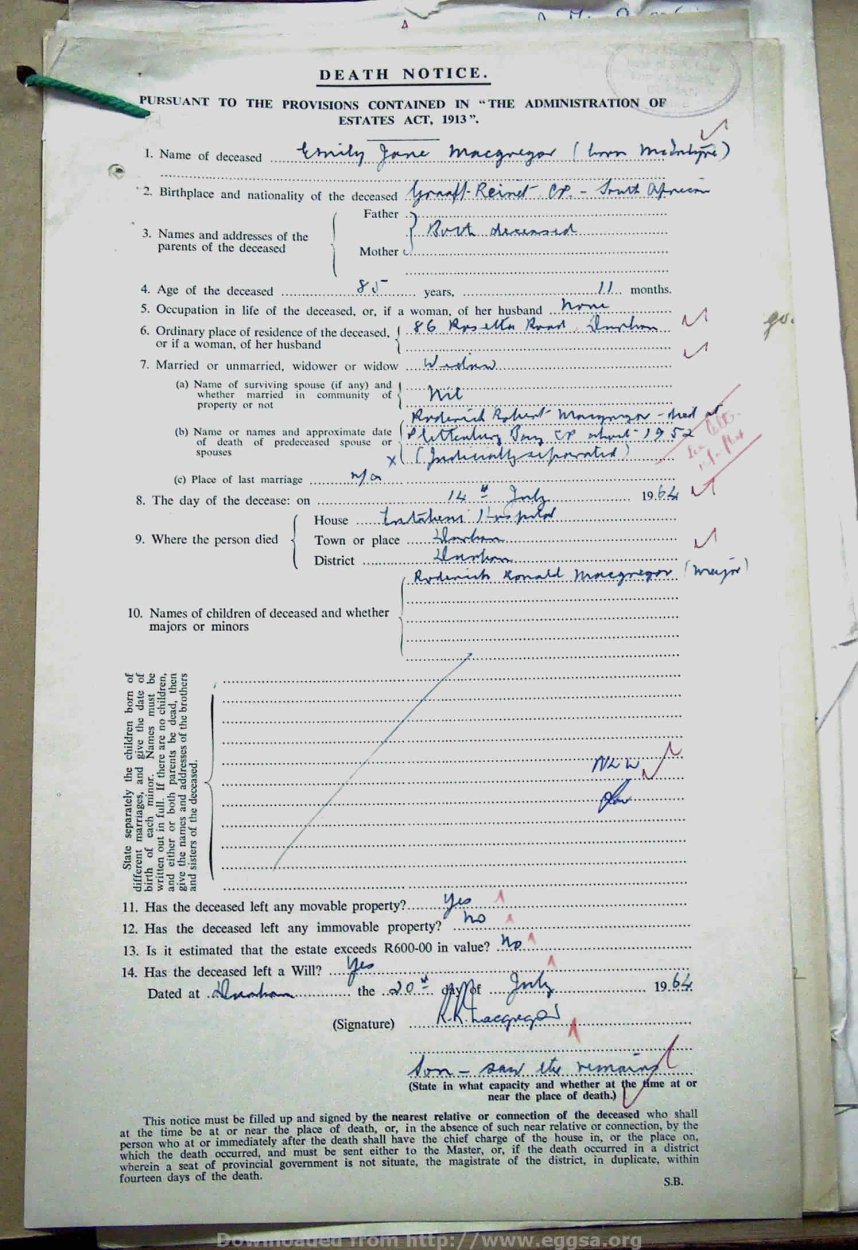 DEATH NOTICE.
PURSUANT TO THE PROVISIONS CONTAINED IN "THE ADMINISTRATION OF
ESTATES ACT, 1913".
1. Name of deceased Emily Jane Macgregor (born McIntyre)
2. Birthplace and nationality of the deceased Graaff-Reinet CP. - South African
Father
3. Names and addresses of the
parents of the deceased
Both deceased
Mother
4. Age of the deceased 85 years, 11 months.
5. Occupation in life of the deceased, or, if a woman, of her husband None
6. Ordinary place of residence of the deceased, 86 Rosetta Road, Durban
or if a woman, of her husband
7. Married or unmarried, widower or widow Widow
(a) Name of surviving spouse (if any) and
whether married in community of
property or not
Nil
(b) Name or names and approximate date
of death of predeceased spouse or
spouses
Roderick Robert Macgregor - died at
Plettenberg Bay CP about 1952
(Judicially separated)
X
See
(c) Place of last marriage n/a
8. The day of the decease: on 14th July 1964
9. Where the person died
House Entabeni Hospital
Town or place Durban
District Durban
10. Names of children of deceased and whether
majors or minors
Roderick Ronald Macgregor (major)
State separately the children born of
different marriages, and give the date of
birth of each minor. Names must be
written out in full. If there are no children,
and either or both parents be dead, then
give the names and addresses of the brothers
and sisters of the deceased.
11. Has the deceased left any movable property? Yes
12. Has the deceased left any immovable property? No
13. Is it estimated that the estate exceeds R600-00 in value? No
14. Has the deceased left a Will? Yes
Dated at Durban the 20th day of July 1964
(Signature) R.R. Macgregor
Son - saw the remains
(State in what capacity and whether at the time at or
near the place of death.)
This notice must be filled up and signed by the nearest relative or connection of the deceased who shall
at the time be at or near the place of death, or, in the absence of such near relative or connection, by the
person who at or immediately after the death shall have the chief charge of the house in, or the place on,
which the death occurred, and must be sent either to the Master, or, if the death occurred in a district
wherein a seat of provincial government is not situate, the magistrate of the district, in duplicate, within
fourteen days of the death.
S.B.
Downloaded from http://www.eggsa.org